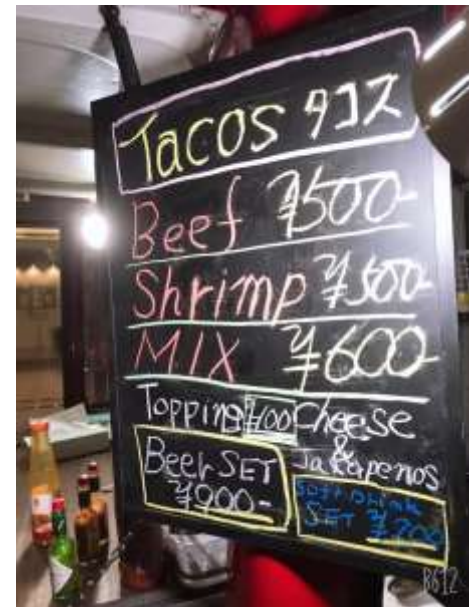 Tacos タコス
Beef ¥500-
Shrimp ¥500-
MIX ¥600-
Topping ¥100 Cheese
& Jalapenos
Beer SET
¥900-
Soft Drink
SET ¥700
B612